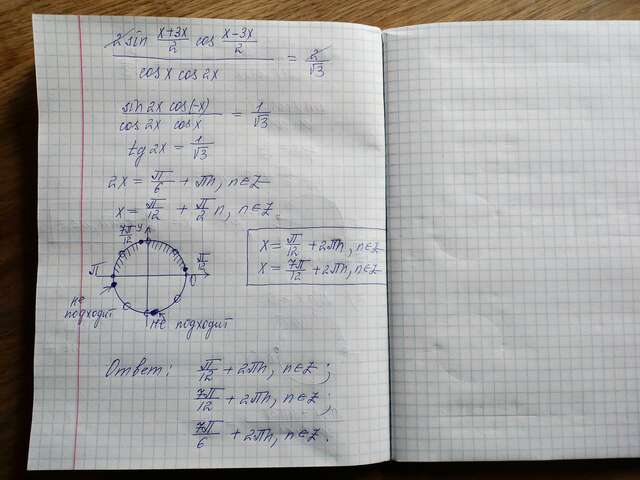 2 sin (x+3x)/2 cos (x-3x)/2 / cos x cos 2x = 2/√3
sin 2x cos(-x) / cos 2x cos x = 1/√3
tg 2x = 1/√3
2x = π/6 + πn, n∈Z
x = π/12 + π/2 n, n∈Z
7π/12 y
π π/12
0 x
не подходит
не подходит
x = π/12 + 2πn, n∈Z
x = 7π/12 + 2πn, n∈Z
Ответ: π/12 + 2πn, n∈Z;
7π/12 + 2πn, n∈Z;
7π/6 + 2πn, n∈Z.